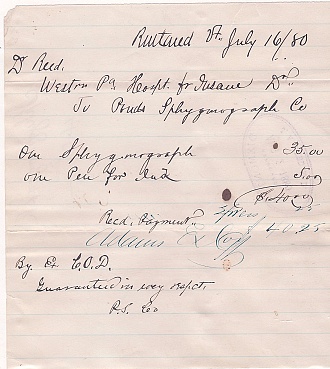 Rutland Vt. July 16/80
Dr Reed.
Western Pa Hospt. for Insane Dr.
To Ponds Sphygmograph Co
One Sphygmograph 35.00
one Pen for Ink 5.00
$40.00
Recd. Payment Express 25
Adams Ex Coy 40.25
By Ex C.O.D.
Guaranteed in every respect.
P.S. Co